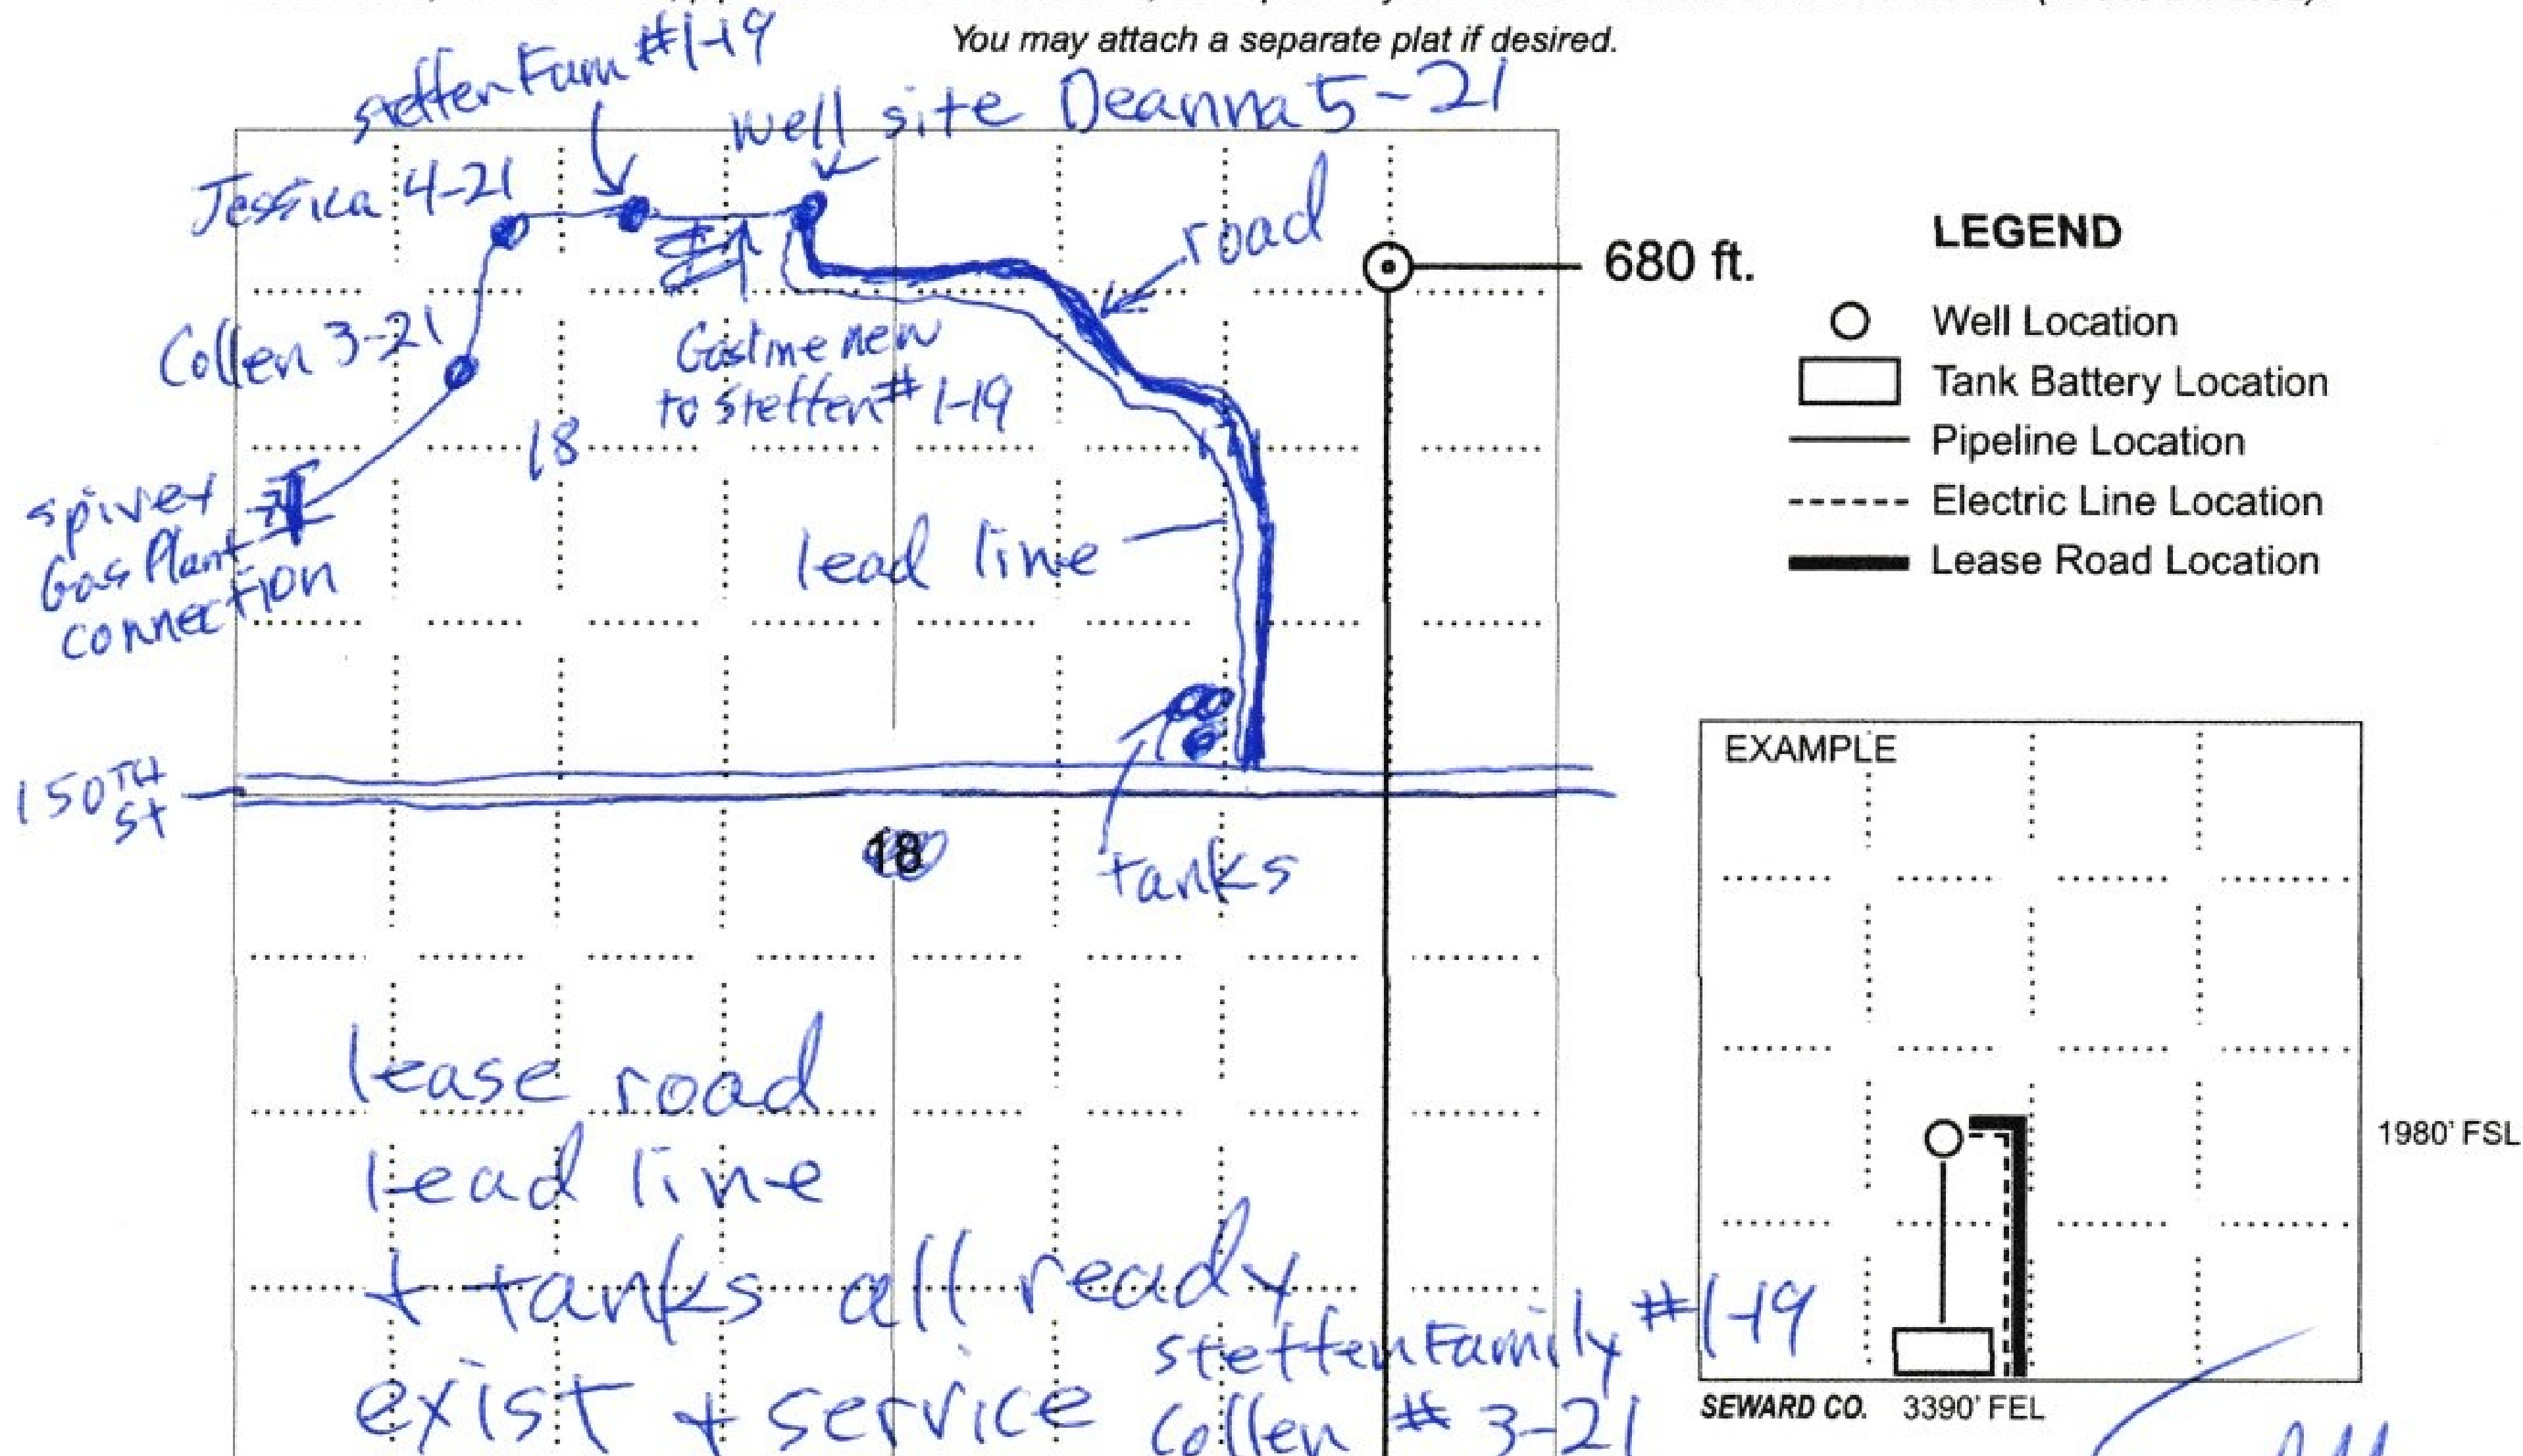 You may attach a separate plat if desired.
steffen Fam #1-19
well site Deanna 5-21
Jessica 4-21
road
680 ft.
Collen 3-21
Gasline new
to steffen # 1-19
18
spivey
Gas Plant
connection
lead line
150TH
St
18
tanks
lease road
lead line
+ tanks all ready
exist + service
steffen Family #1-19
Collen # 3-21
LEGEND
Well Location
Tank Battery Location
Pipeline Location
Electric Line Location
Lease Road Location
EXAMPLE
1980' FSL
SEWARD CO. 3390' FEL